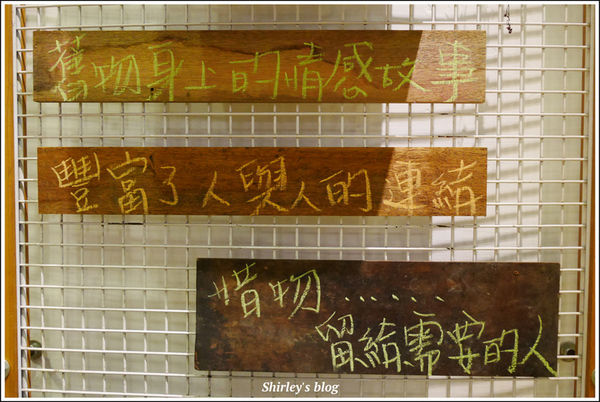 舊物身上的情感故事
豐富了人與人的連結
惜物......
留給需要的人
Shirley's blog